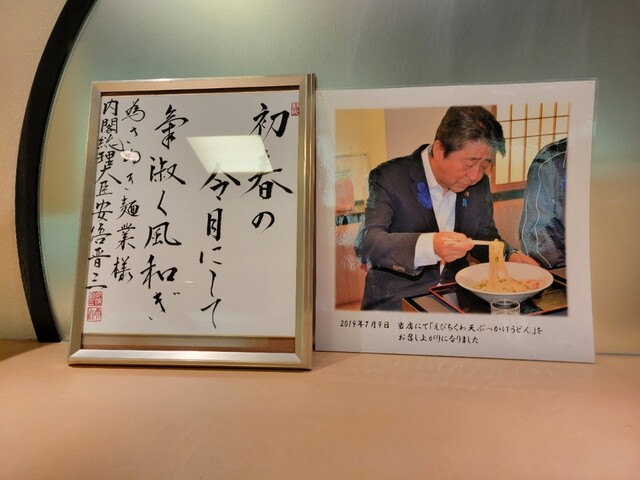 初春の
令月にして
氣淑く風和ぎ
為さぬき麺業様
内閣総理大臣安倍晋三
2019年7月9日 当店にて「えびちくわ天ぶっかけうどん」を
お召し上がりになりました